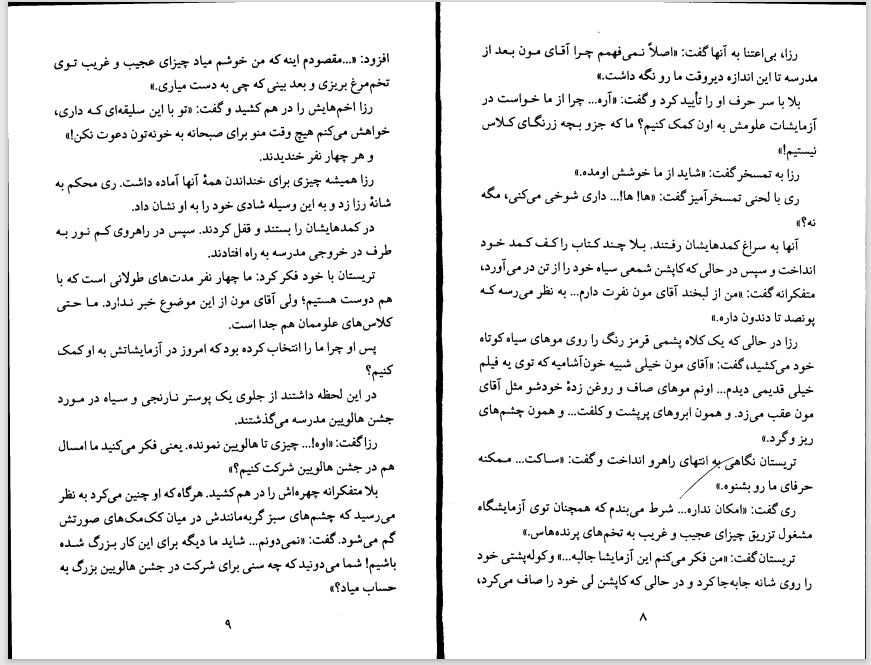 رزا، بی‌اعتنا به آنها گفت: «اصلاً نمی‌فهمم چرا آقای مون بعد از
مدرسه تا این اندازه دیروقت ما رو نگه داشت.»
بلا با سر حرف او را تأیید کرد و گفت: «آره... چرا از ما خواست در
آزمایشات علومش به اون کمک کنیم؟ ما که جزو بچه زرنگای کلاس
نیستیم!»
رزا به تمسخر گفت: «شاید از ما خوشش اومده.»
ری با لحنی تمسخرآمیز گفت: «ها! ها!... داری شوخی می‌کنی، مگه
نه؟»
آنها به سراغ کمدهایشان رفتند. بلا چند کتاب را کف کمد خود
انداخت و سپس در حالی که کاپشن شمعی سیاه خود را از تن در می‌آورد،
متفکرانه گفت: «من از لبخند آقای مون نفرت دارم... به نظر می‌رسه که
پونصد تا دندون داره.»
رزا در حالی که یک کلاه پشمی قرمز رنگ را روی موهای سیاه کوتاه
خود می‌کشید، گفت: «آقای مون خیلی شبیه خون‌آشامیه که توی یه فیلم
خیلی قدیمی دیدم... اونم موهای صاف و روغن زدهٔ خودشو مثل آقای
مون عقب می‌زد. و همون ابروهای پرپشت و کلفت... و همون چشم‌های
ریز و گرد.»
تریستان نگاهی به انتهای راهرو انداخت و گفت: «ساکت... ممکنه
حرفای ما رو بشنوه.»
ری گفت: «امکان نداره... شرط می‌بندم که همچنان توی آزمایشگاه
مشغول تزریق چیزای عجیب و غریب به تخم‌های پرنده‌هاس.»
تریستان گفت: «من فکر می‌کنم این آزمایشا جالبه...» و کوله‌پشتی خود
را روی شانه جابه‌جا کرد و در حالی که کاپشن لی خود را صاف می‌کرد،
۸
افزود: «...مقصودم اینه که من خوشم میاد چیزای عجیب و غریب توی
تخم‌مرغ بریزی و بعد بینی که چی به دست میاری.»
رزا اخم‌هایش را در هم کشید و گفت: «تو با این سلیقه‌ای که داری،
خواهش می‌کنم هیچ وقت منو برای صبحانه به خونه‌تون دعوت نکن!»
و هر چهار نفر خندیدند.
رزا همیشه چیزی برای خنداندن همهٔ آنها آماده داشت. ری محکم به
شانهٔ رزا زد و به این وسیله شادی خود را به او نشان داد.
در کمدهایشان را بستند و قفل کردند. سپس در راهروی کم نور به
طرف در خروجی مدرسه به راه افتادند.
تریستان با خود فکر کرد: ما چهار نفر مدت‌های طولانی است که با
هم دوست هستیم؛ ولی آقای مون از این موضوع خبر ندارد. ما حتی
کلاس‌های علوممان هم جدا است.
پس او چرا ما را انتخاب کرده بود که امروز در آزمایشاتش به او کمک
کنیم؟
در این لحظه داشتند از جلوی یک پوستر نارنجی و سیاه در مورد
جشن هالووین مدرسه می‌گذشتند.
رزا گفت: «اوه!... چیزی تا هالووین نمونده. یعنی فکر می‌کنید ما امسال
هم در جشن هالووین شرکت کنیم؟»
بلا متفکرانه چهره‌اش را در هم کشید. هرگاه که او چنین می‌کرد به نظر
می‌رسید که چشم‌های سبز گربه‌مانندش در میان کک‌مک‌های صورتش
گم می‌شود. گفت: «نمی‌دونم... شاید ما دیگه برای این کار بزرگ شده
باشیم! شما می‌دونید که چه سنی برای شرکت در جشن هالووین بزرگ به
حساب میاد؟»
۹